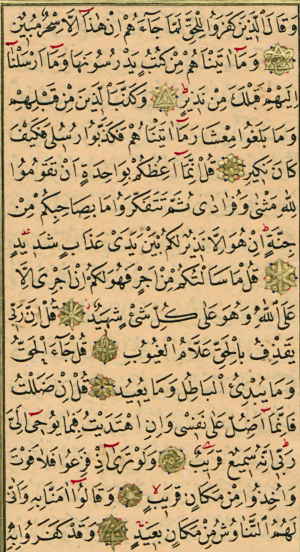 وَقَالَ الَّذِينَ كَفَرُوا لِلْحَقِّ لَمَّا جَاءَهُمْ إِنْ هَذَا إِلَّا سِحْرٌ مُبِينٌ
وَمَا آتَيْنَاهُمْ مِنْ كُتُبٍ يَدْرُسُونَهَا وَمَا أَرْسَلْنَا
إِلَيْهِمْ قَبْلَكَ مِنْ نَذِيرٍ وَكَذَّبَ الَّذِينَ مِنْ قَبْلِهِمْ
وَمَا بَلَغُوا مِعْشَارَ مَا آتَيْنَاهُمْ فَكَذَّبُوا رُسُلِي فَكَيْفَ
كَانَ نَكِيرِ قُلْ إِنَّمَا أَعِظُكُمْ بِوَاحِدَةٍ أَنْ تَقُومُوا
لِلَّهِ مَثْنَى وَفُرَادَى ثُمَّ تَتَفَكَّرُوا مَا بِصَاحِبِكُمْ مِنْ
جِنَّةٍ إِنْ هُوَ إِلَّا نَذِيرٌ لَكُمْ بَيْنَ يَدَيْ عَذَابٍ شَدِيدٍ
قُلْ مَا سَأَلْتُكُمْ مِنْ أَجْرٍ فَهُوَ لَكُمْ إِنْ أَجْرِيَ إِلَّا
عَلَى اللَّهِ وَهُوَ عَلَى كُلِّ شَيْءٍ شَهِيدٌ قُلْ إِنَّ رَبِّي
يَقْذِفُ بِالْحَقِّ عَلَّامُ الْغُيُوبِ قُلْ جَاءَ الْحَقُّ
وَمَا يُبْدِئُ الْبَاطِلُ وَمَا يُعِيدُ قُلْ إِنْ ضَلَلْتُ
فَإِنَّمَا أَضِلُّ عَلَى نَفْسِي وَإِنِ اهْتَدَيْتُ فَبِمَا يُوحِي إِلَيَّ
رَبِّي إِنَّهُ سَمِيعٌ قَرِيبٌ وَلَوْ تَرَى إِذْ فَزِعُوا فَلَا فَوْتَ
وَأُخِذُوا مِنْ مَكَانٍ قَرِيبٍ وَقَالُوا آمَنَّا بِهِ وَأَنَّى
لَهُمُ التَّنَاوُشُ مِنْ مَكَانٍ بَعِيدٍ وَقَدْ كَفَرُوا بِهِ